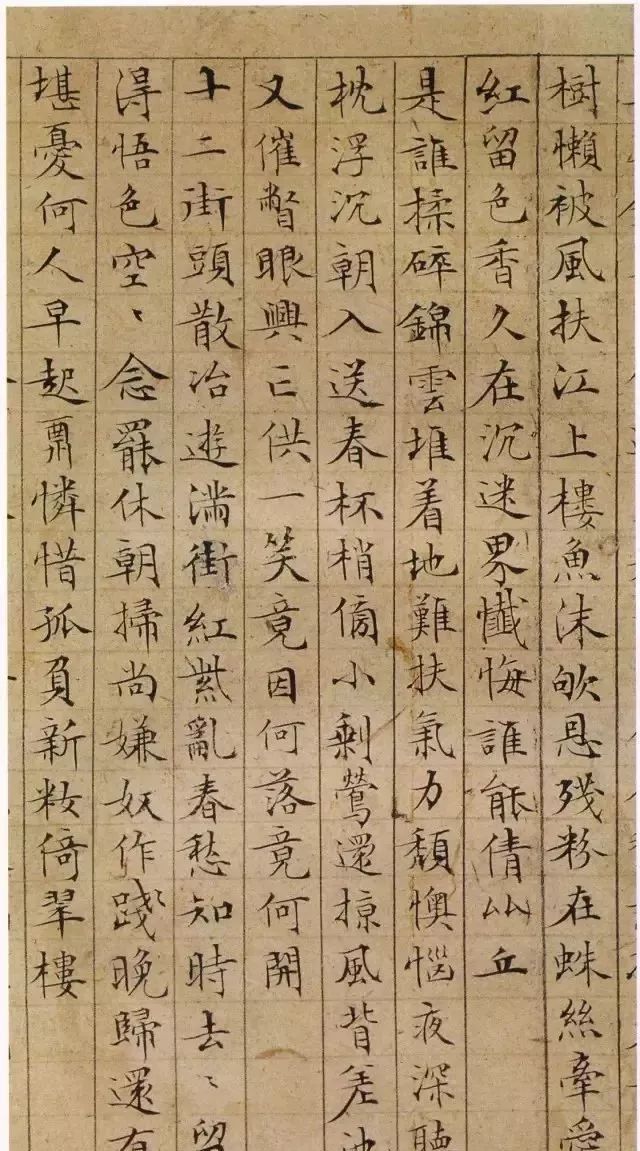 樹懶被風扶江上樓魚沫欨恩殘粉在蛛絲牽愛
紅留色香久在沉迷界懺悔誰能倩比丘
是誰揉碎錦雲堆着地難扶氣力頹懊惱夜深聽
枕浮沉朝入送春杯梢傍小剩鶯還掠風背差池
又催瞥眼興亡供一笑竟因何落竟何開
十二街頭散冶遊滿街紅紫亂春愁知時去〻留
淂悟色空〻念罷休朝掃尚嫌奴作踐晚歸還有
堪憂何人早起鬧憐惜孤負新妝倚翠樓